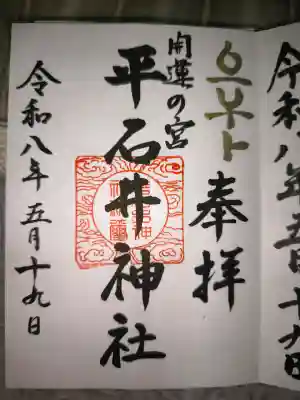 令和八年五月十九日
奉拝
開運の宮
平石井神社
令和八年五月十九日